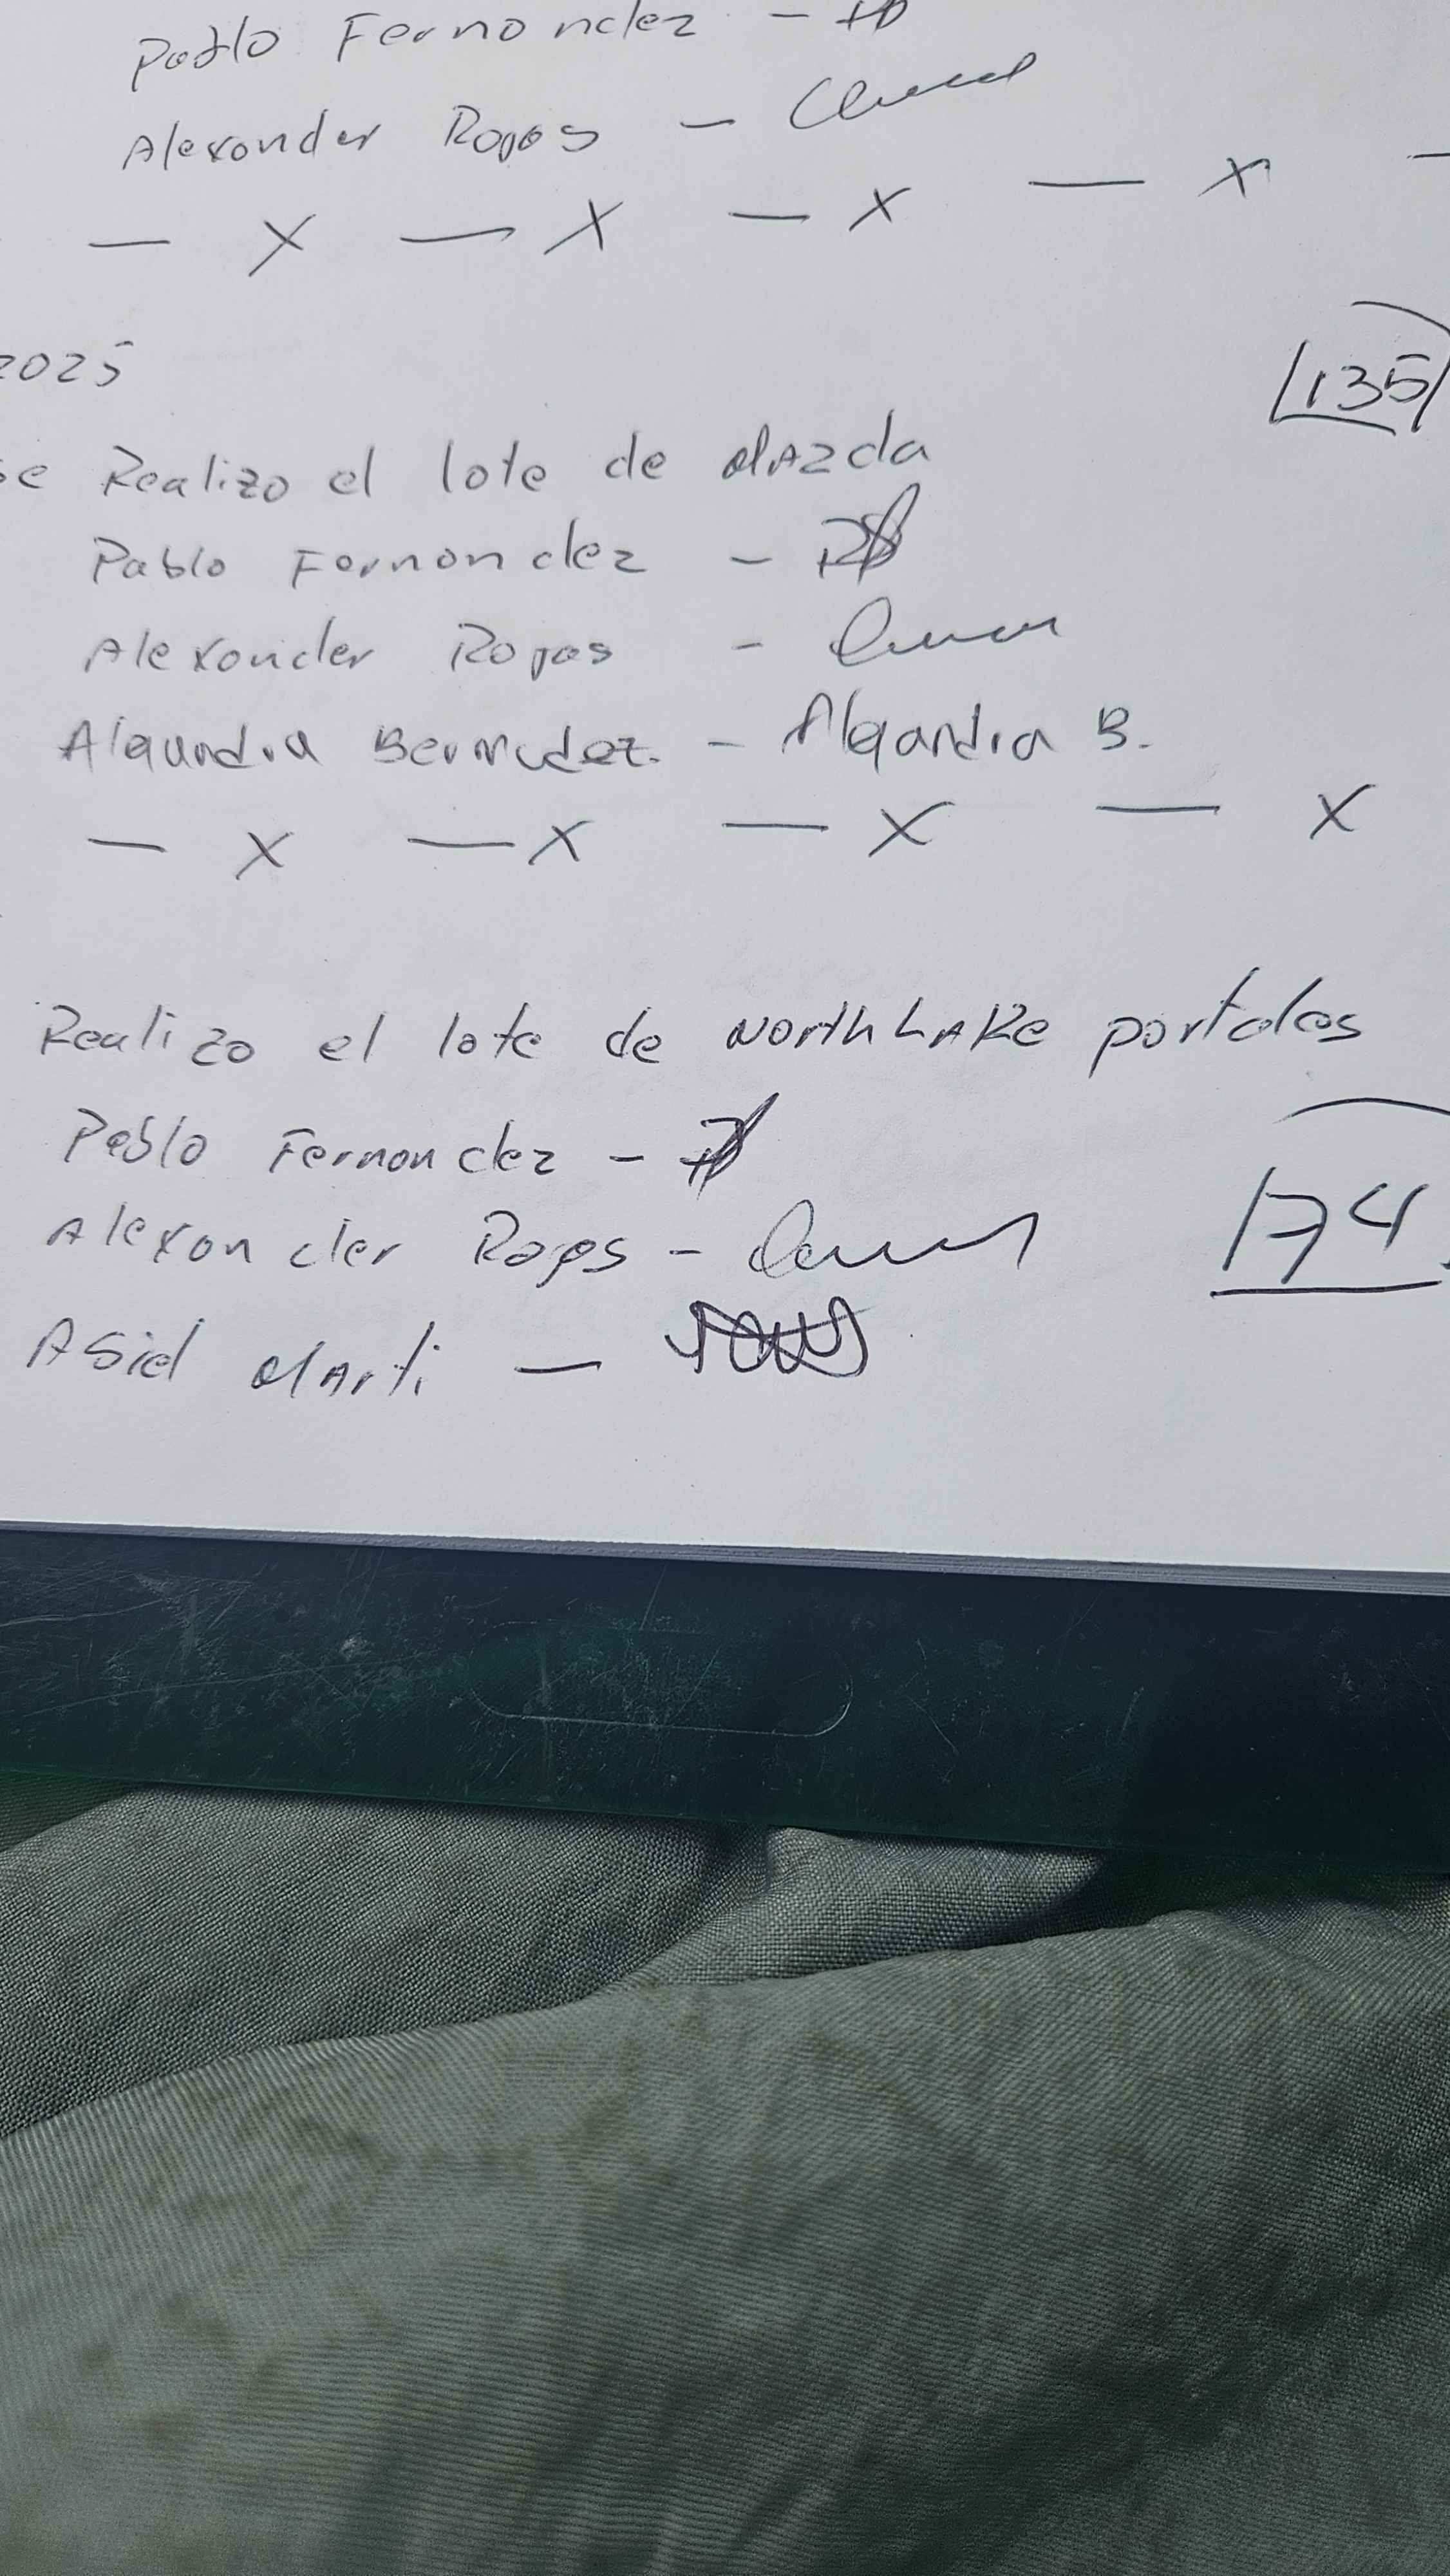 Pablo Fernandez -
Alexander Rojas -
— X — X — X — X —
2025
135
se Realizo el lote de Mazda
Pablo Fernandez -
Alexander Rojas -
Alejandra Bermudez. - Alejandra B.
— X — X — X — X
Realizo el lote de NorthLAKe portales
Pablo Fernandez -
Alexander Rojas -
174
Asiel Marti —